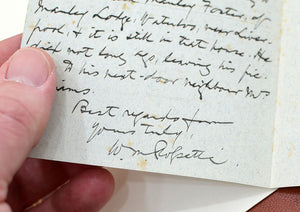 Stanley Lodge, Waterloo, near Liver-
pool, & it is still in that house. He
died not long ago, leaving his pic
to his next-door neighbour Mr
Best regards from
Yours truly,
W M Rossetti